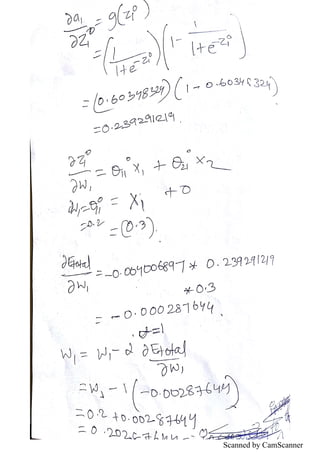 ∂a₁/∂z₁⁰ = g(z₁⁰)
= (1/(1+e^-z₁⁰)) (1 - 1/(1+e^-z₁⁰))
= (0.60348324)(1-0.60348324)
= 0.239291219.
∂z₁⁰/∂w₁ = θ₁₁⁰ x₁ + θ₂₁⁰ x₂
w₁=θ₁₁⁰ = x₁ + 0
=0.2 = (0.3).
∂Etotal/∂w₁ = -0.004006897 * 0.239291219
*0.3
= -0.000287644.
α=1
w₁ = w₁ - α ∂Etotal/∂w₁
= w₁ - 1 (-0.00287644)
= 0.2 + 0.00287644
= 0.20287644
Scanned by CamScanner